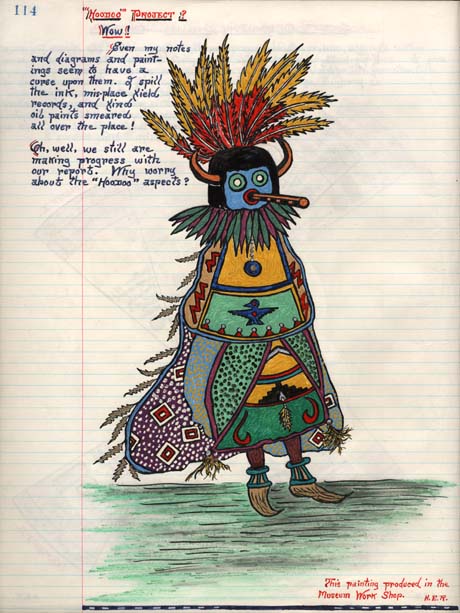 114
"Hoodoo" Project?
Wow!!
Even my notes
and diagrams and paint-
ings seem to have a
curse upon them. I spill
the ink, mis-place field
records, and find
oil paints smeared
all over the place!
Oh, well, we still are
making progress with
our report. Why worry
about the "Hoodoo" aspects?
This painting produced in the
Museum Work Shop. H.E.R.